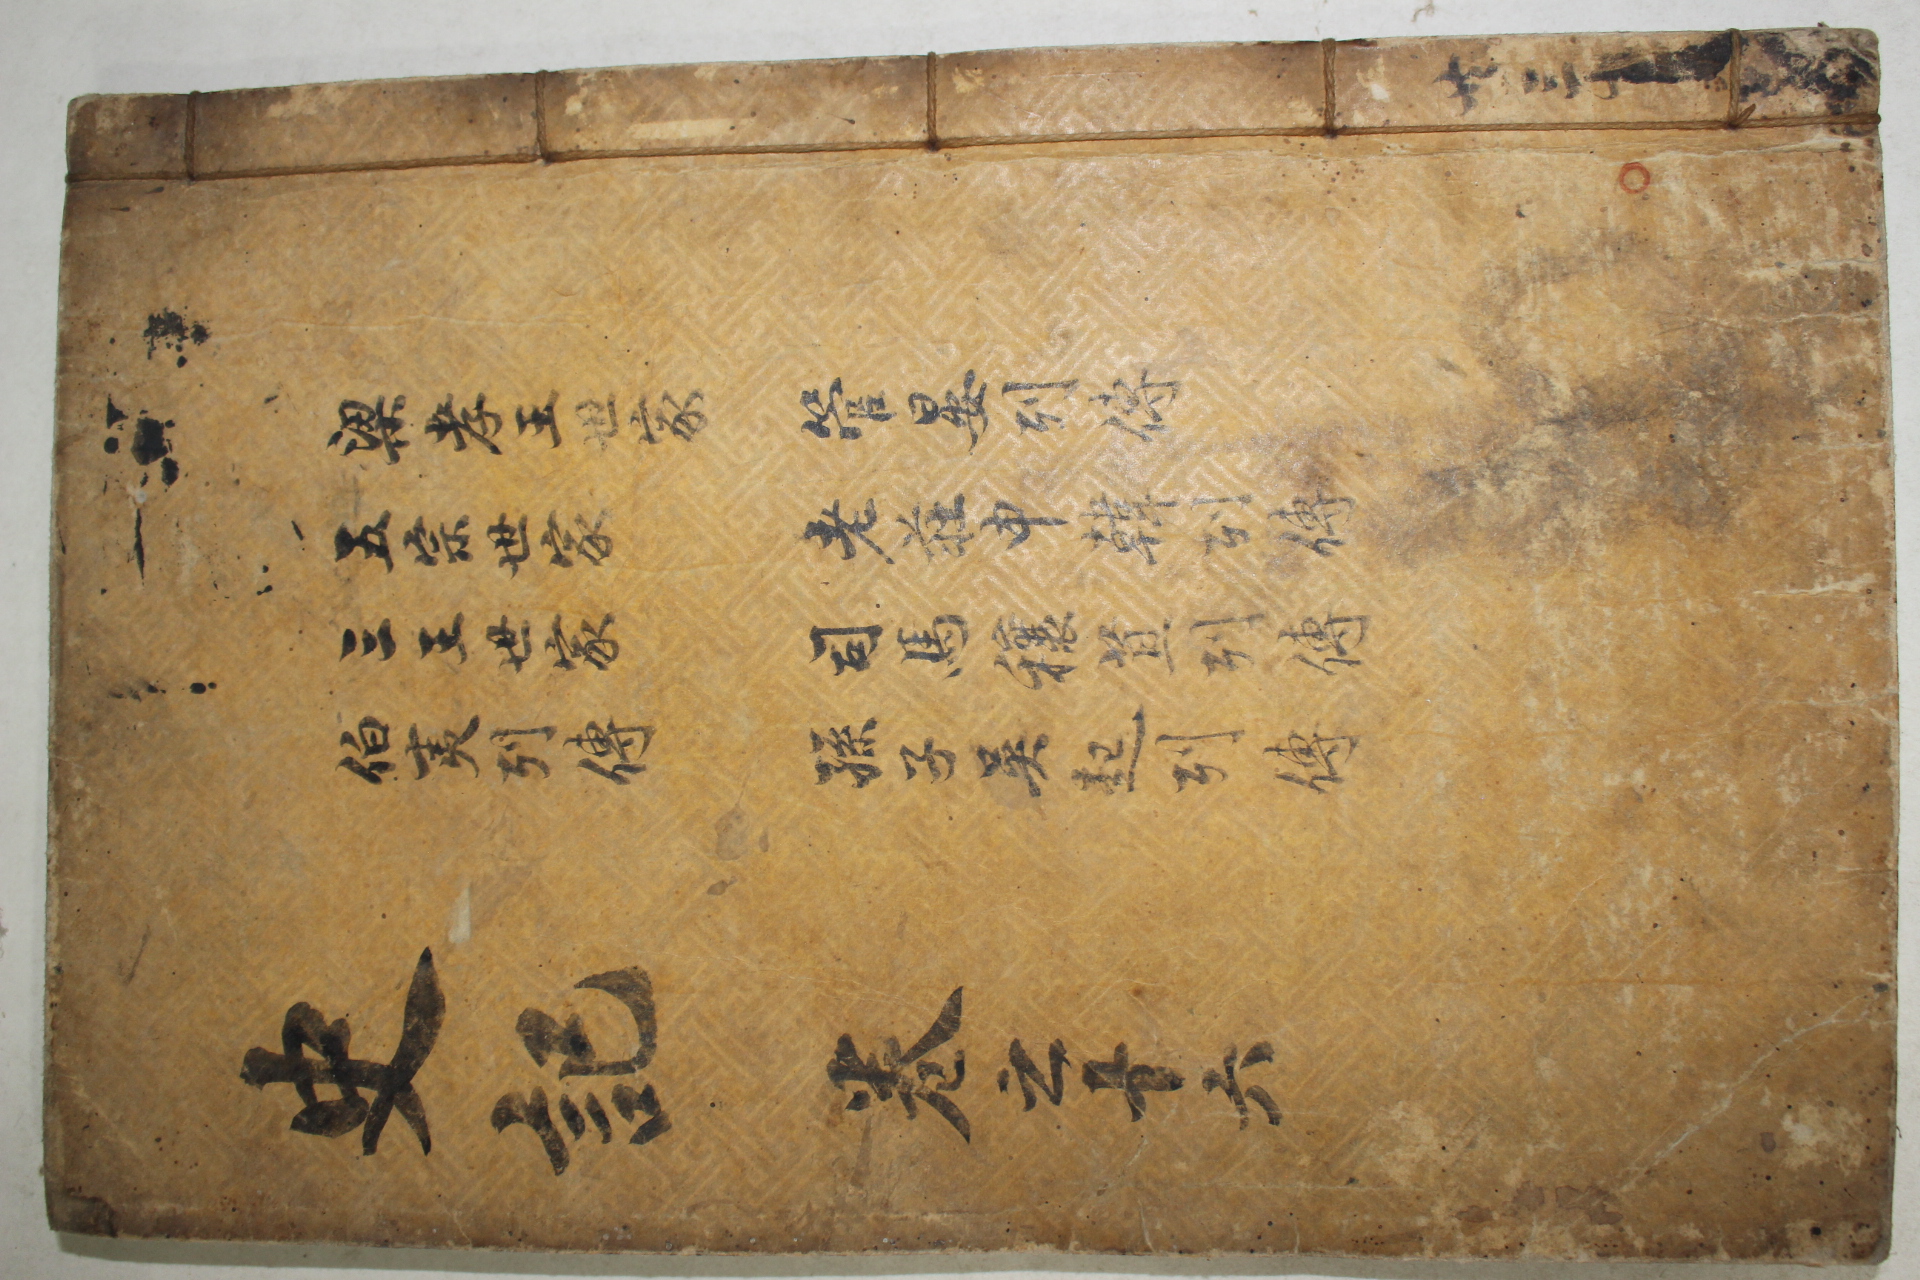 梁孝王世家
五宗世家
三王世家
伯夷列傳
管晏列傳
老莊申韓列傳
司馬穰苴列傳
孫子吳起列傳
史記 卷之十六